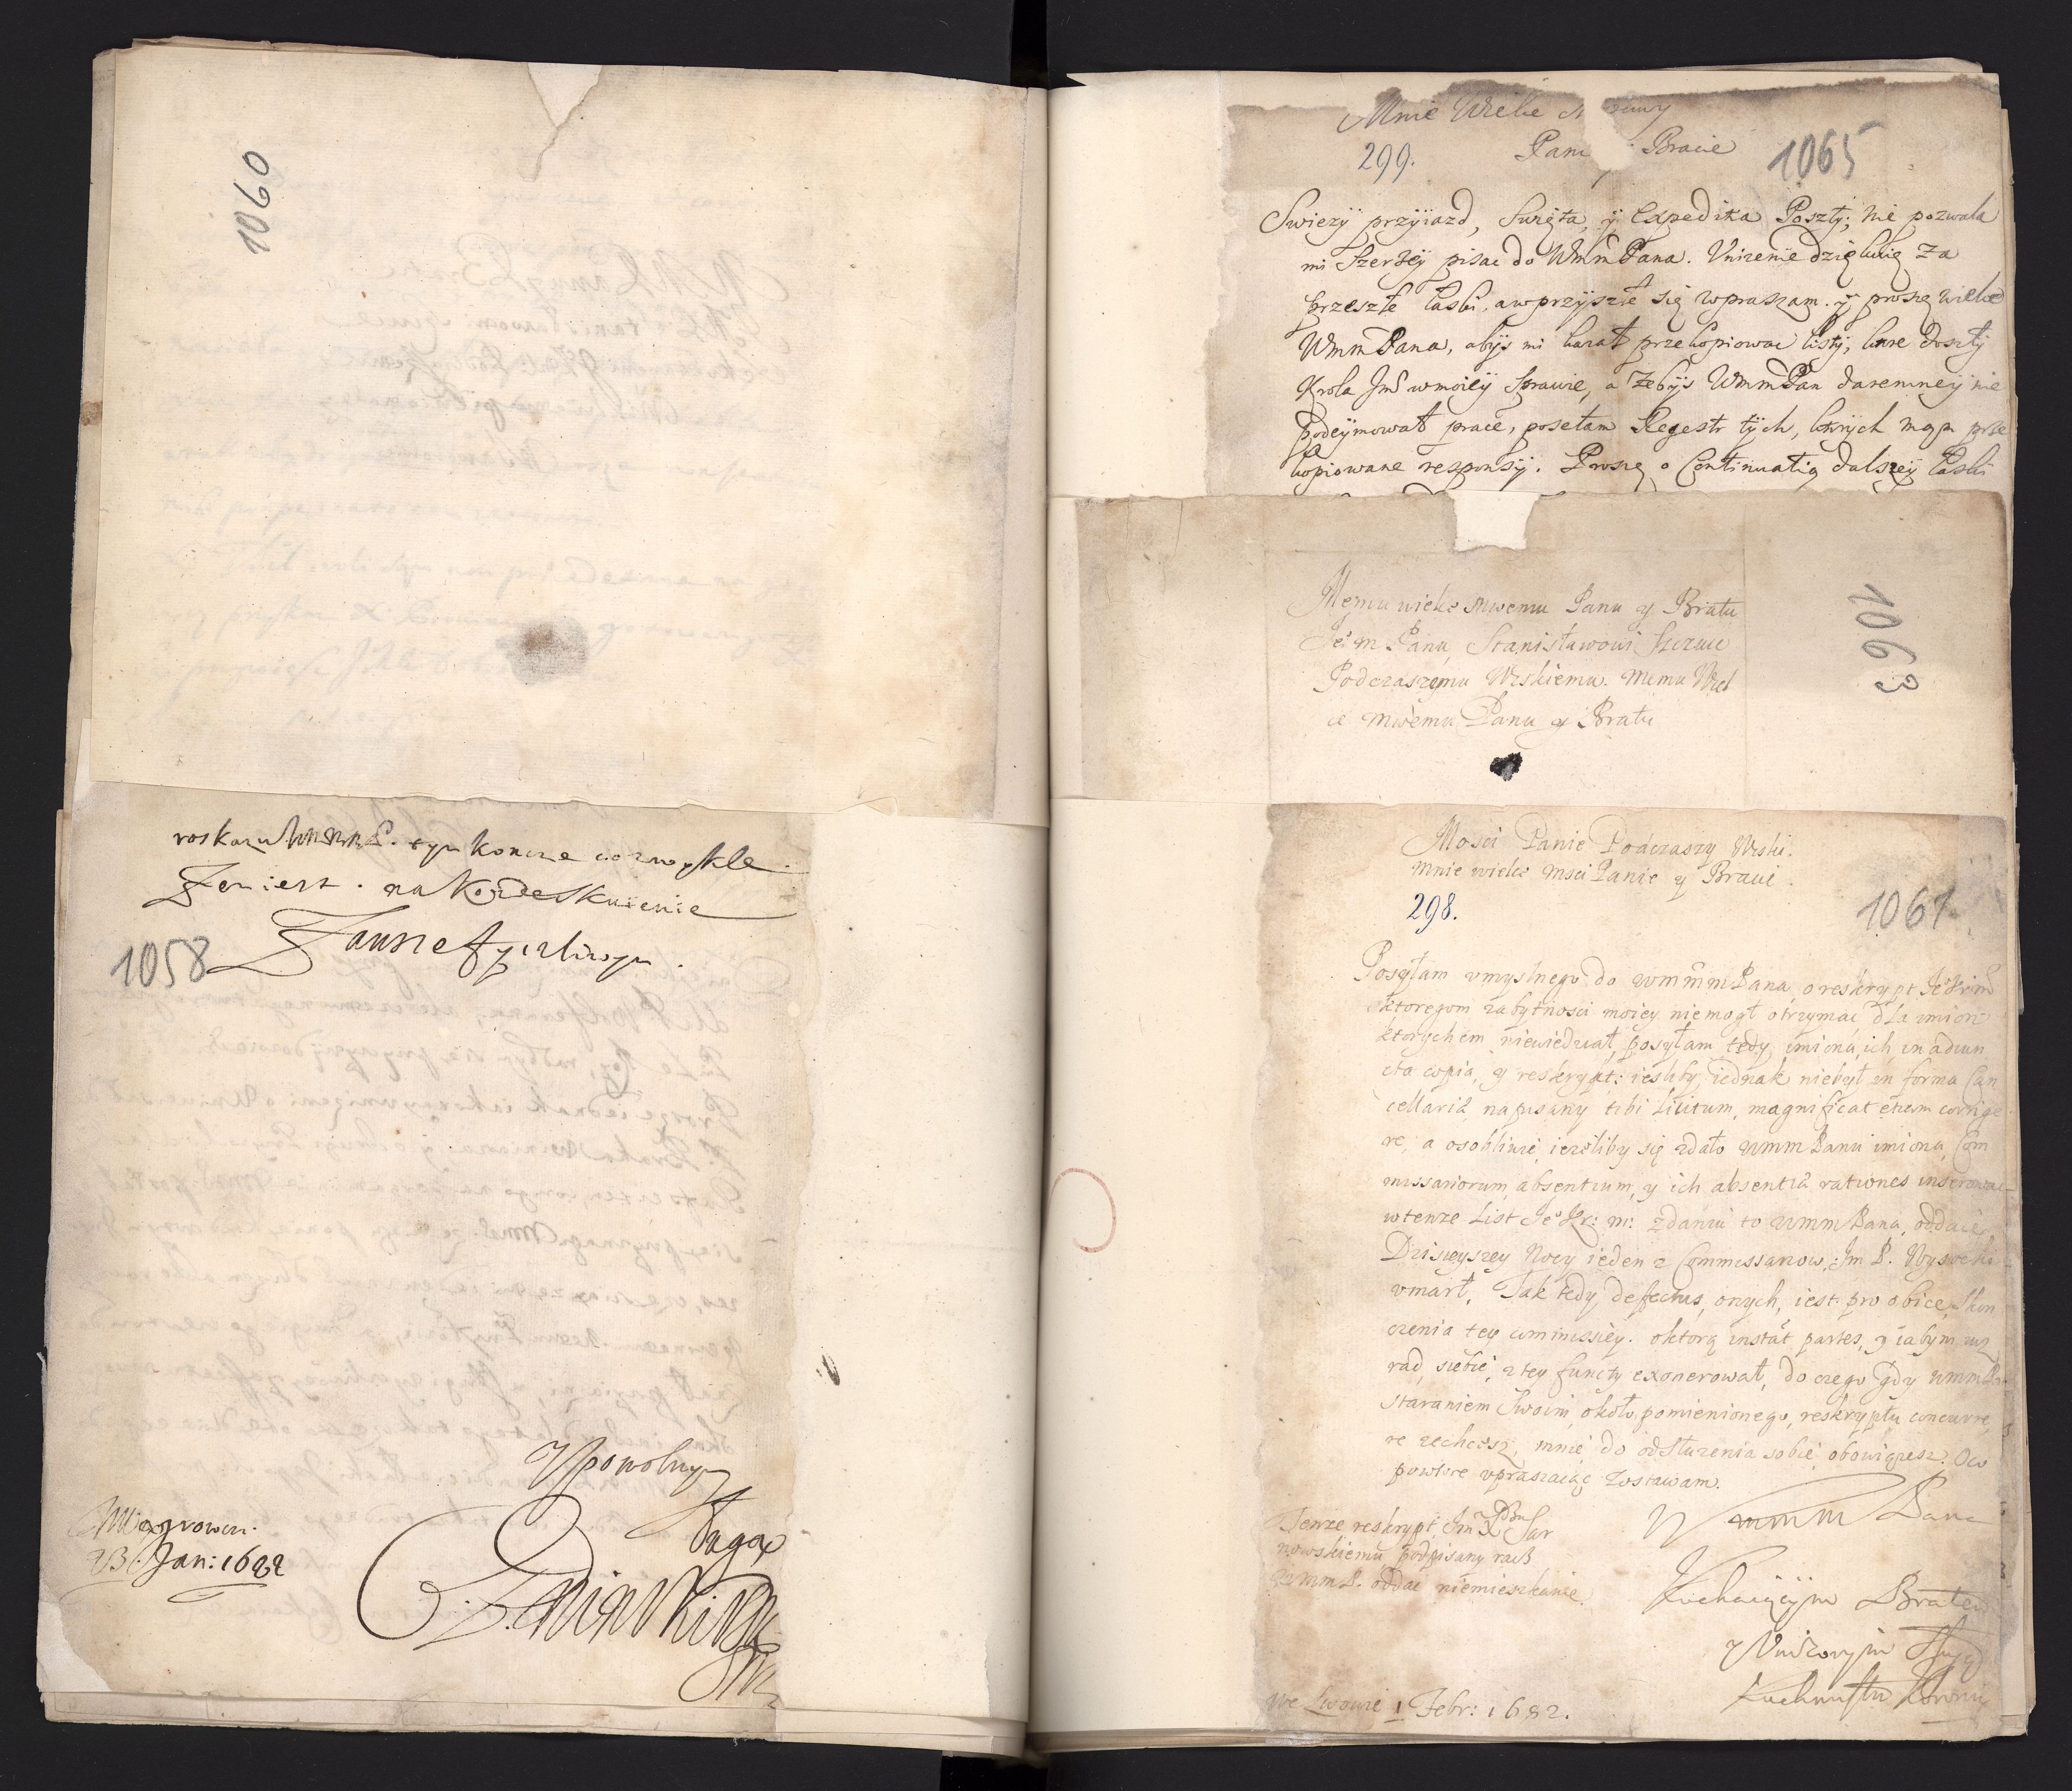 1060
roskazu WMMP. tym koncze co zwykle
Zem iest. na kożde skinienie
Zawsze życzliwym.
1058
Y powolnym
Sługą
Mogrowcu.
23. Jan: 1682
Mnie Wielce M
Pan Bracie
299.
1065
Swiezy przyiazd, Swięta, y Expeditia Poszty; nie pozwala
mi Szerzey pisac do WmmPana. Vnizenie dziękuię za
przeszłe łaski, a w przyszłe się wpraszam. y proszę wielce
WmmPana, abys mi kazał przekopiowac listy, ktore doszły
Krola Jm w moiey Sprawie, a zebys WmmPan daremney nie
podeymował prace, posełam Regestr tych, ktorych mam prze
kopiowane responsy. Proszę o Continuatią dalszey łaski
Memu wielce Mwemu Panu y Bratu
Je m Panu Stanisławowi Szczuce
Podczaszemu Wiskiemu. Memu Wiel
ce Mwemu Panu y Bratu
1063
Mosci Panie Podczaszy Wiski.
Mnie wielce Msci Panie y Bracie.
298.
1061
Posyłam vmyslnego do wmmmPana o reskrypt Je Kr m
ktoregom za bytnosci moiey niemogł otrzymac dla imion
ktorychem niewiedział, posyłam tedy imiona ich in adiun
cta copia y reskrypt: iesliby iednak niebył in forma Can
cellariæ napisany tibi licitum, magnificat etiam corrige
re, a osobliwie, iezeliby się zdało WmmPanu imiona Com
missariorum absentium, y ich absentiæ rationes inserowac
w tenze List Je Kr: m: zdaniu to WmmPana oddaię
Dzisieyszey Nocy ieden z Commissarzow Jm P. Wysocki
vmarł, Tak tedy defectus onych, iest pro obice skon
czenia tey commissiey. o ktorą instat partes, y iabym iuz
rad siebie z tey functy exonerował, do czego gdy WmmPan
staraniem Swoim około pomienionego reskryptu concurre
re zechcesz, mnie do odsłuzenia sobie obowiązesz. O co
powtore vpraszaiąc zostawam.
W mmm Pana
Tenze reskrypt Jm X Sar
nowskiemu podpisany racz
WmmP. oddac niemieszkanie.
Kochaiącym Bratem
y Vnizonym Sługą
We Lwowie 1 Febr: 1682.